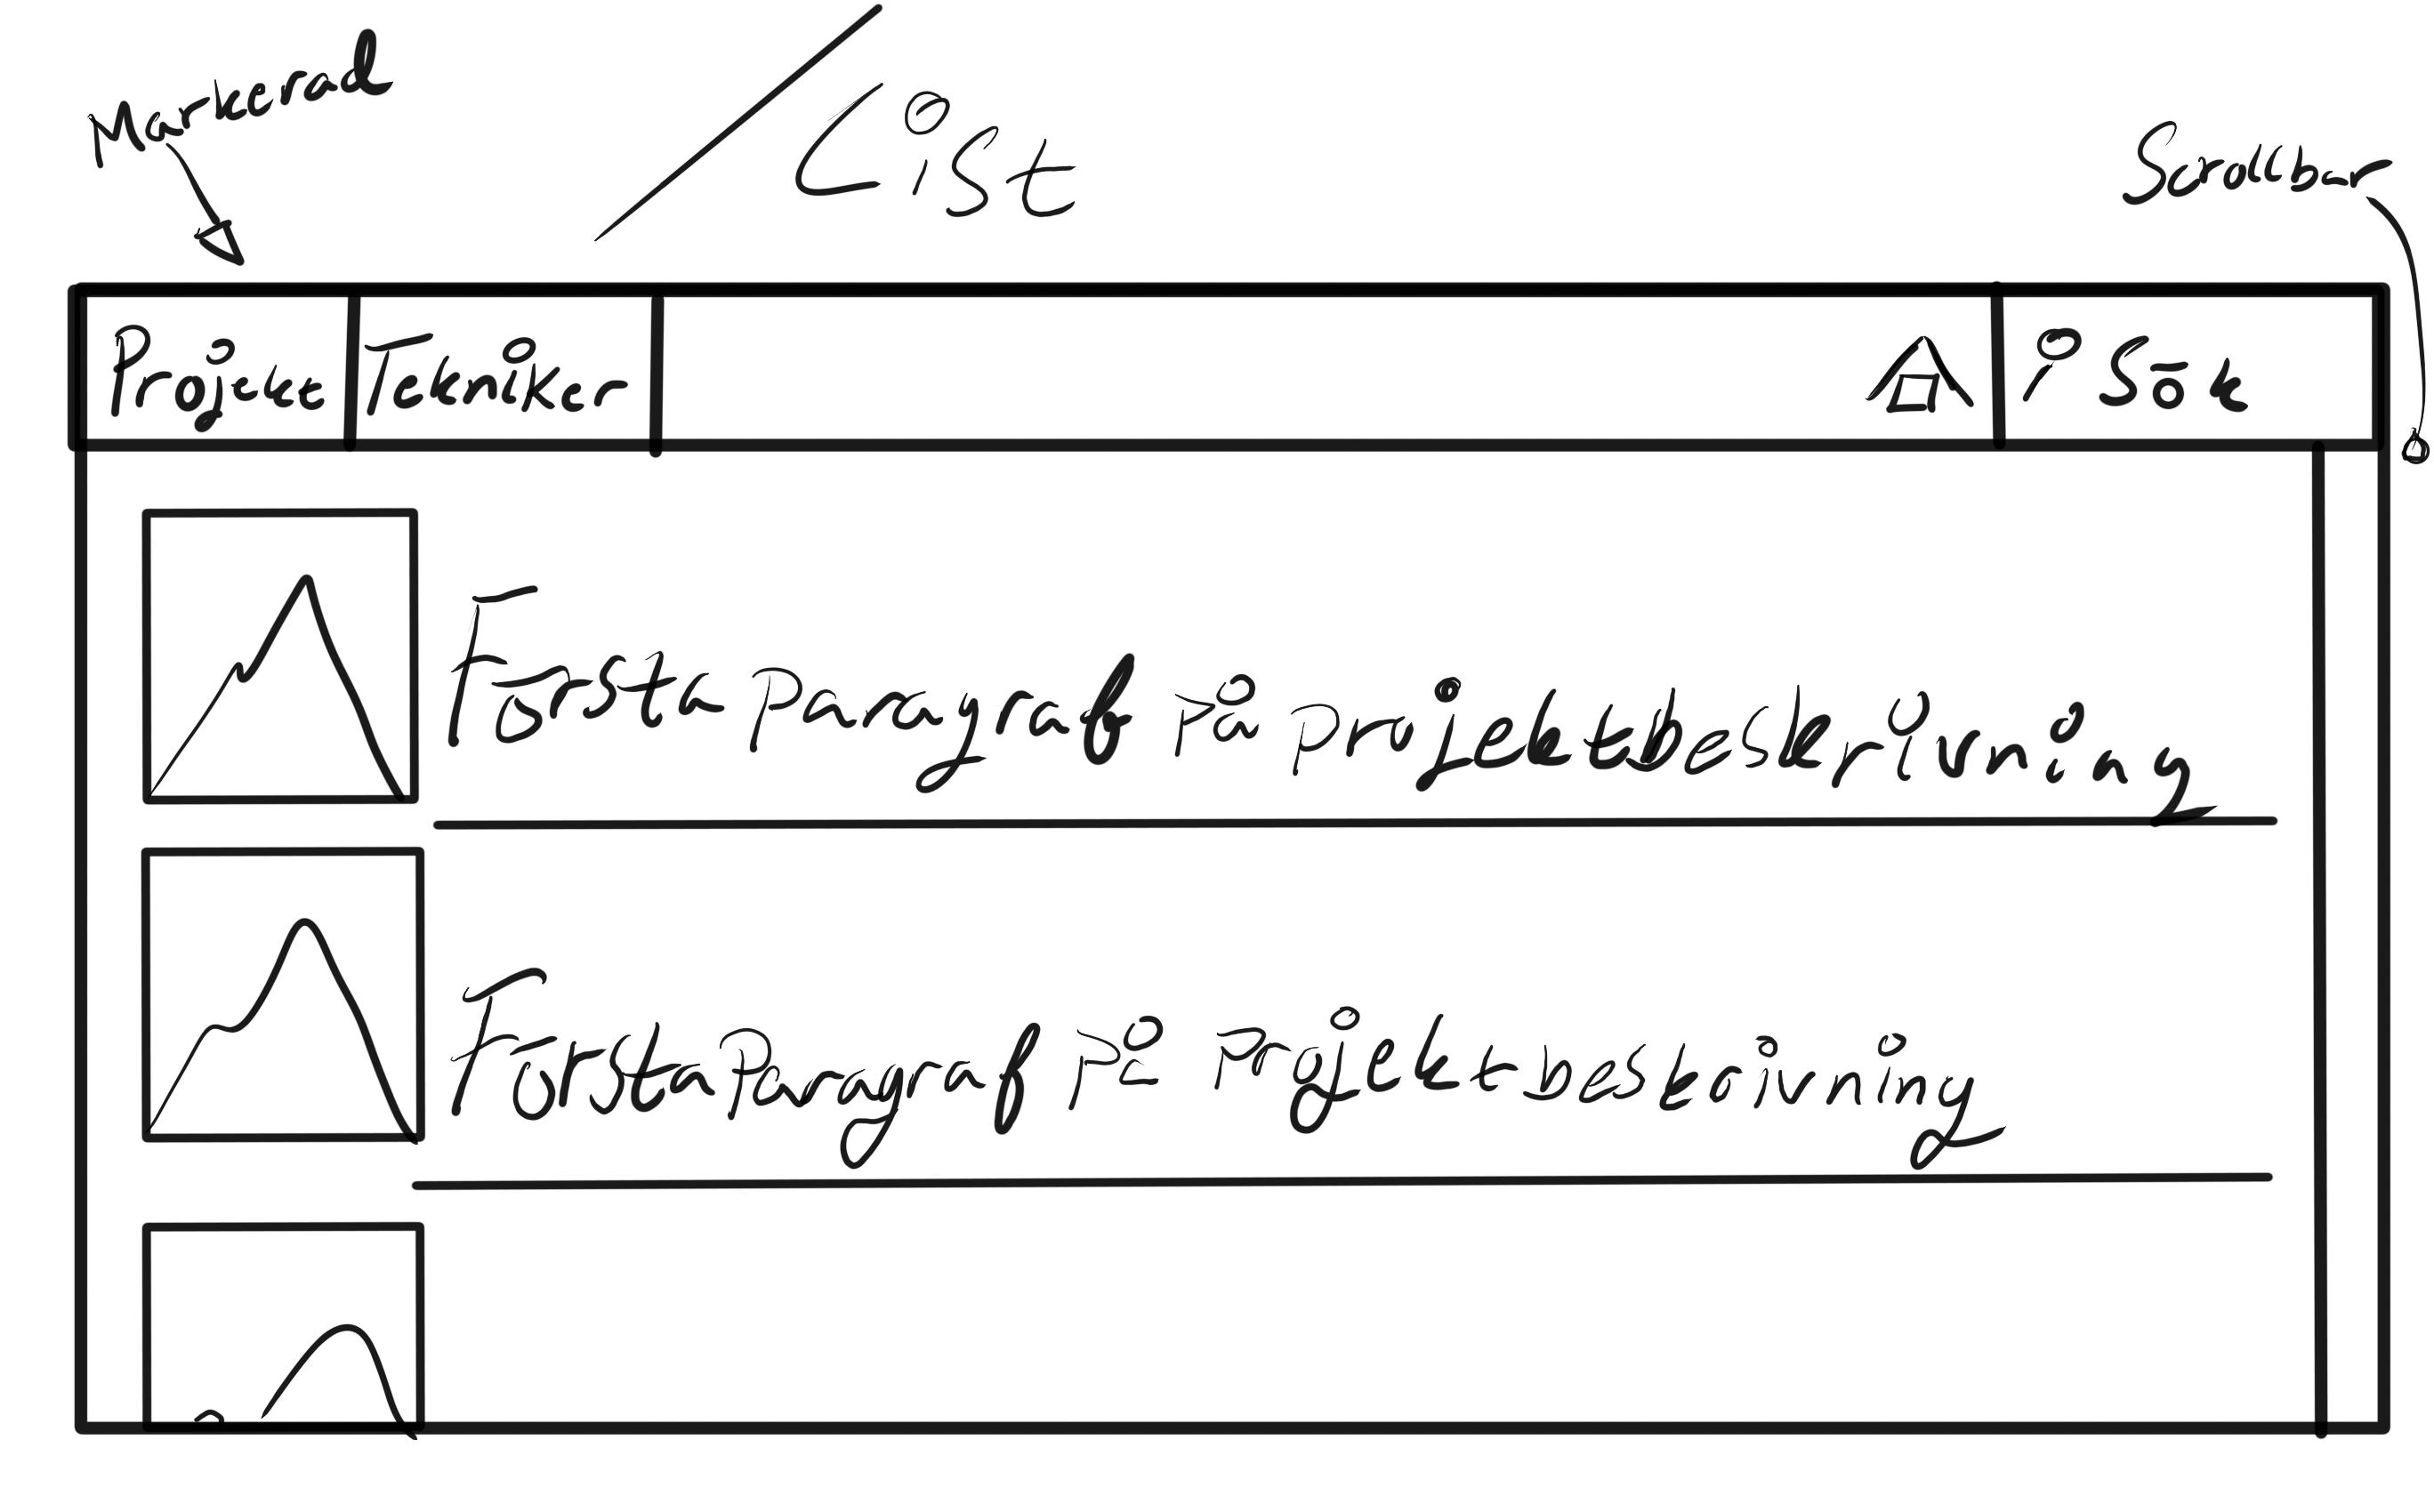 Markerad
/List
Scrollbar
Projekt Tekniker Sök
Första paragraf på projektbeskrivning
Första Paragraf på Projektbeskrivning